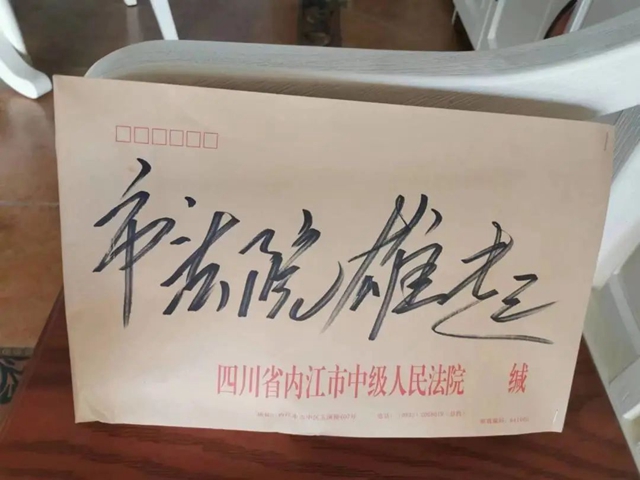 市法院雄起
四川省内江市中级人民法院 缄